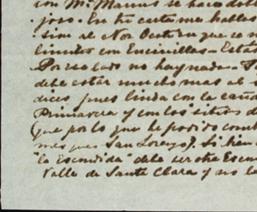 con Mr. Manus se haces dob
joso. En tu carta me hables
sino al Nor Oeste en que co n
limites con Encinillas - Esta
Por ese lado no hay nada.
debe estar mucho mas al s
dices, pues linda con la caña
Primavera y con los sitios d
(que por lo que he podido com
mes que San Lorenzo). Si bien
"la Escondida" debe ser otra Escon
Valle de Santa Clara y no l